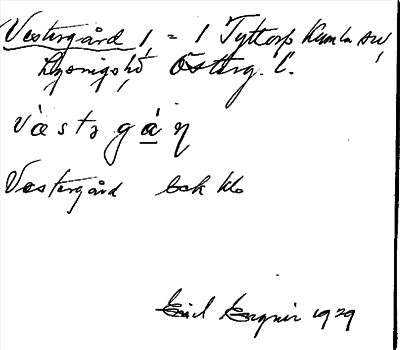 Vestergård 1, = 1 Tyttorp Kumla sn,
Lysingshd Österg. l.
västə gá̱ η
Västergård bok klo
Emil Ezgnir 1929